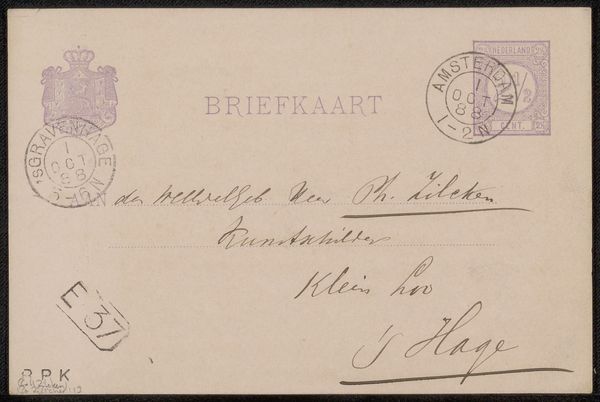 BRIEFKAART
NEDERLAND
2½
CENT.
AMSTERDAM
1
OCT
88
1-2N
'sGRAVENHAGE
1
OCT
88
5-6N
AAN den Weledelgeb Heer Ph. Zilcken
Kunstschilder
Klein Loo
's Hage
E 37
R.P.K